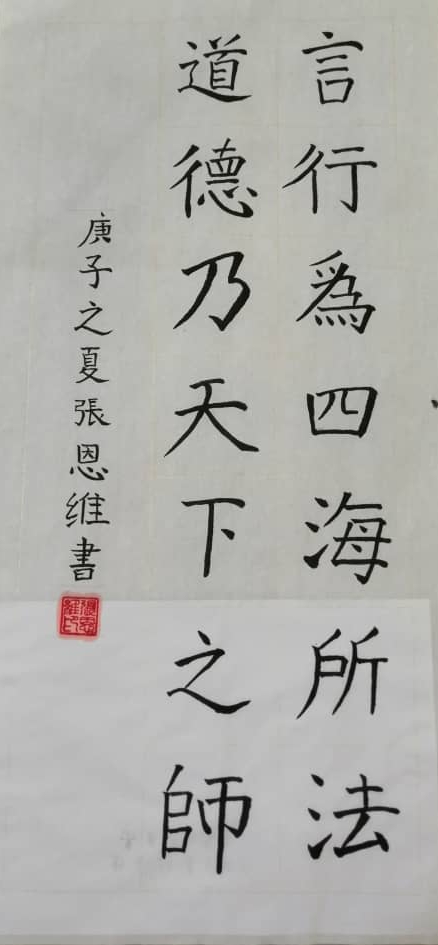 言行爲四海所法
道德乃天下之師
庚子之夏張恩維書